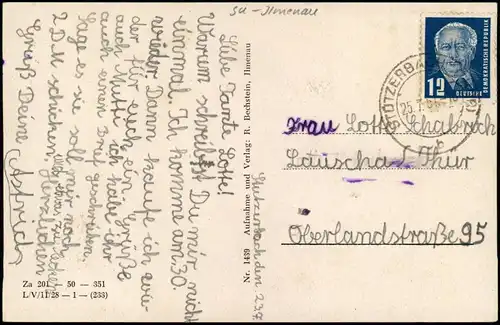 SU-Ilmenau
Liebe Tante Lotte!
Warum schreibst Du mir nicht
einmal. Ich komme am 30.
wieder. Dann kaufe ich wie-
der für euch ein. Grüße
auch Mutti ich habe ihr
auch einen Brief geschrieben.
Sage es sie soll mir noch
2 DM schicken.
Herzlichen
Gruß Deine Astrid
Za 201 – 50 – 351
L/V/11/28 – 1 – (233)
Nr. 1439 Aufnahme und Verlag: R. Bechstein, Ilmenau
Stützerbach den 23.7.
STÜTZERBACH
12
DEUTSCHE
DEMOKRATISCHE REPUBLIK
Frau Lotte Schabrich
Lauscha / Thür
Oberlandstraße 95